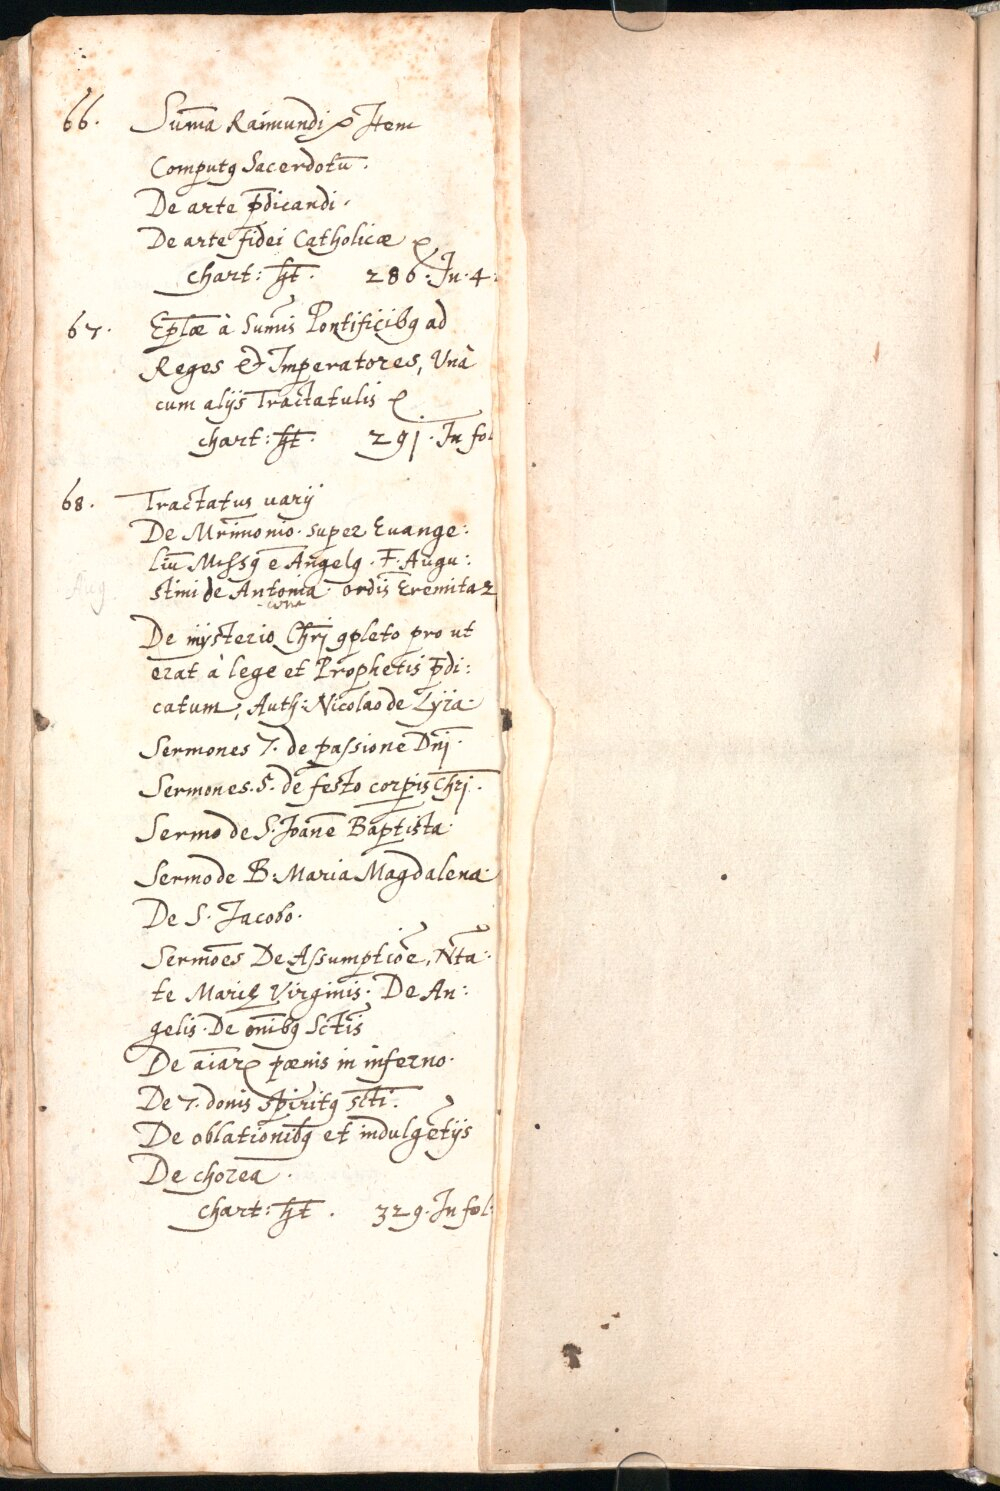 66. Sum̄a Raimundi ꝛc Item
Computꝯ Sacerdotū.
De arte p̄dicandi.
De arte fidei Catholicæ ꝛc
chart: h̄t. 286. In. 4:
67. Ep̄læ à Sum̄is Pontificibꝯ ad
Reges et Imperatores, Unà
cum alijs Tractatulis ꝛc
chart: h̄t. 291. In fol
68. Tractatus varij
De Mr̄imonio. super Euange:
liū Missꝯ ē Angelꝯ. F. Augu:
stini de Antonia. ordīs Eremitaꝝ
cona
De mysterio Chr̄j ꝯpleto pro ut
erat à lege et Prophetis p̄di:
catum, Auth: Nicolao de Lyra.
Sermones 7. de passione Dn̄j.
Sermones. 5. de festo corp̄is Chr̄j.
Sermo de S. Joan̄e Baptista.
Sermo de B: Maria Magdalena.
De S. Jacobo.
Sermōes De Assumptiōe, Nt̄a.
te Marię Virginis. De An:
gelis. De om̄ibꝯ Sct̄is
De aīarꝝ pœnis in inferno.
De 7. donis Spiritꝯ sct̄i.
De oblationibꝯ et indulgētijs
De chorea.
chart: h̄t. 329. In fol.
Aug